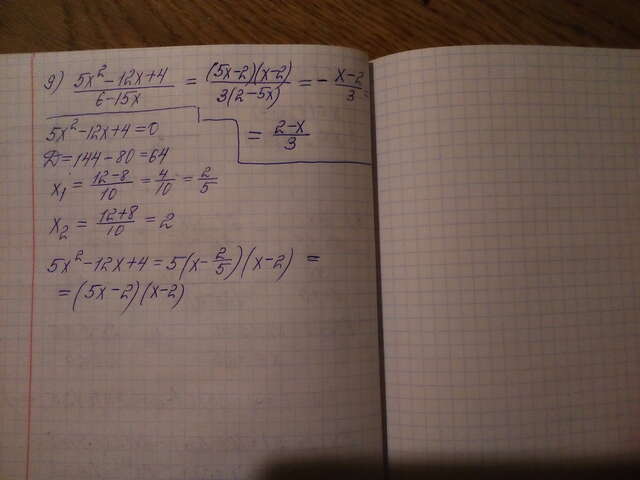 9) (5x²-12x+4)/(6-15x) = ((5x-2)(x-2))/(3(2-5x)) = - (x-2)/3 =
= (2-x)/3
5x²-12x+4=0
D=144-80=64
x₁ = (12-8)/10 = 4/10 = 2/5
x₂ = (12+8)/10 = 2
5x²-12x+4=5(x-2/5)(x-2) =
=(5x-2)(x-2)